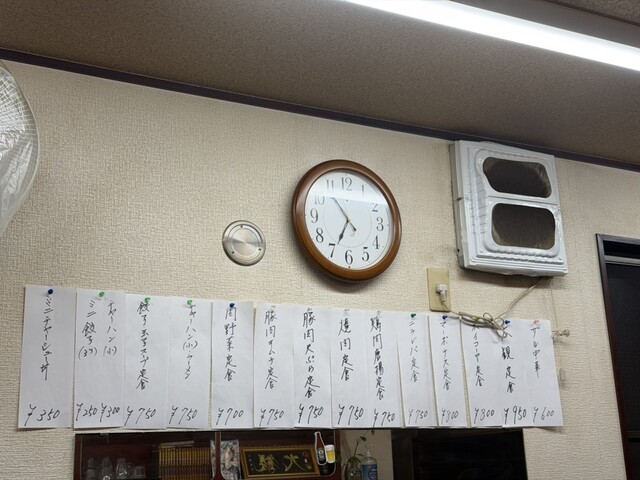 12
1
2
3
4
5
6
7
8
9
10
11
ミニチャーシュー丼
¥350
チャーハン(小)
¥300
ミニ餃子(3ケ)
¥250
餃子玉子スープ定食
¥750
チャーハン(小)ラーメン
¥750
肉野菜定食
¥700
豚肉キムチ定食
¥750
豚肉天ぷら定食
¥750
焼肉定食
¥750
鶏肉唐揚定食
¥750
ニラレバ定食
¥750
¥800
¥800
定食
¥950
冷し中華
¥600